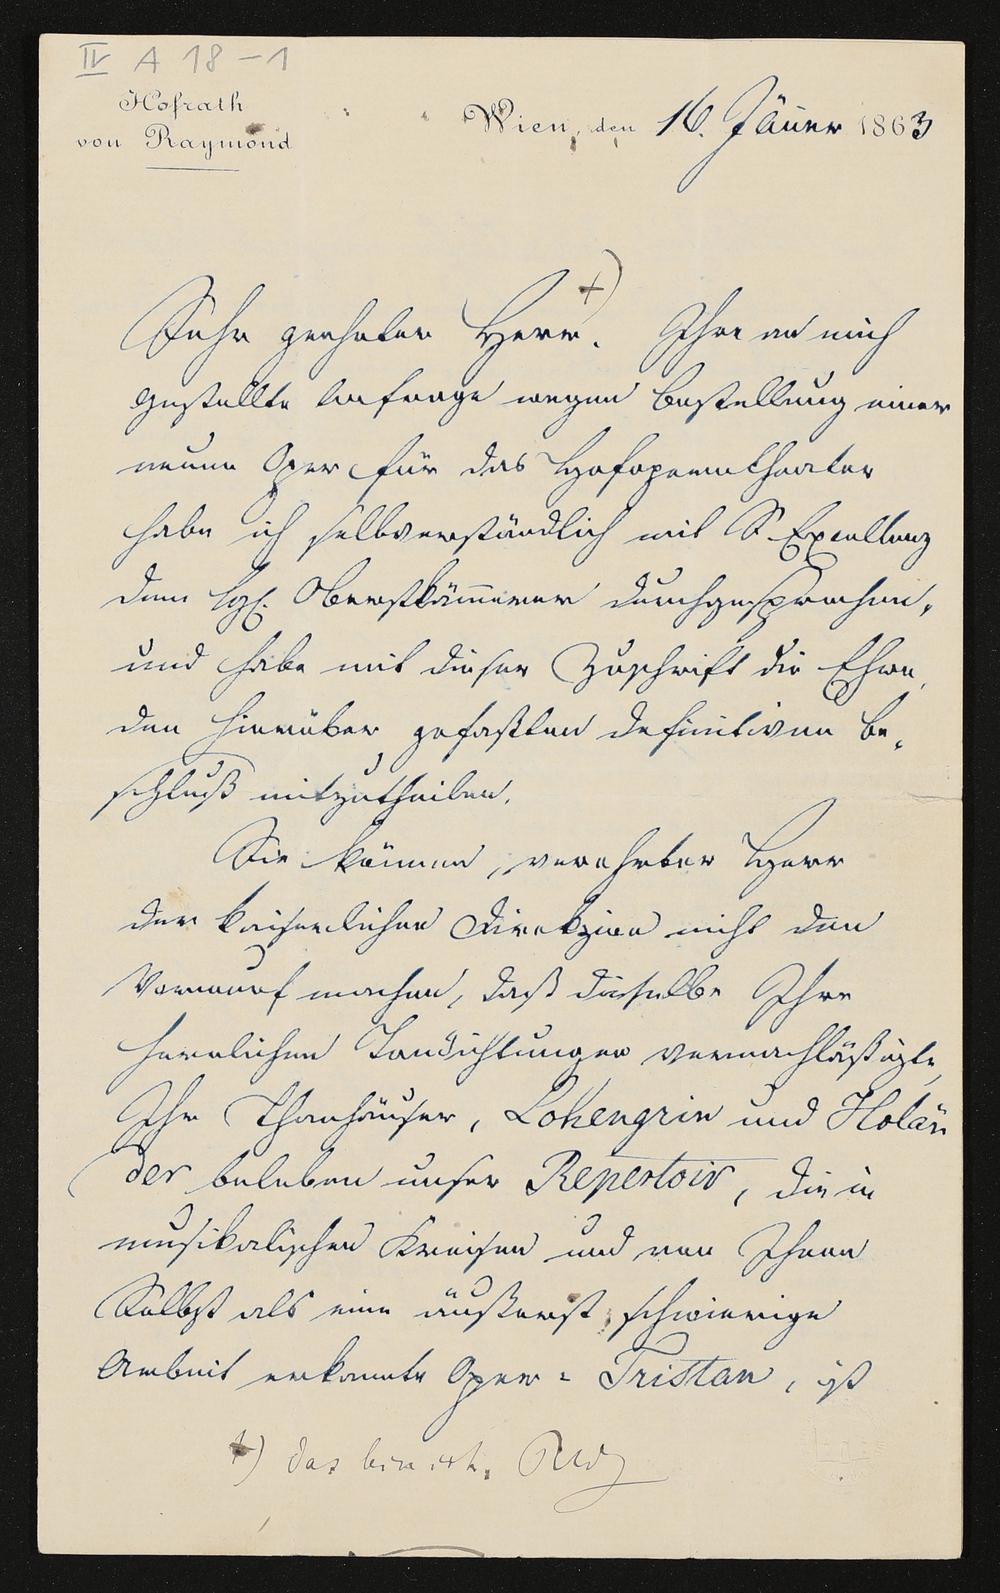 IV A 18-1
Hofrath
von Raymond
Wien, den 16. Jäner 1863
Sehr geehrter Herr. +) Ihre an mich
gestellte Anfrage wegen Bestellung einer
neuen Oper für das Hofoperntheater
habe ich selbverständlich mit Sr Excellenz
dem Oberstkämmerer durchgesprochen,
und habe mit dieser Zuschrift die Ehre,
den hierüber gefaßten definitiven Be-
schluß mitzutheilen.
Sie können, verehrter Herr
der kaiserlichen Direkzion nicht den
Vorwurf machen, daß dieselbe Ihre
herrlichen Tondichtungen vernachläßigte,
Ihr Thanhäuser, Lohengrin und Holän
der beleben unser Repertoir, die in
musikalischen Kreisen und von Ihnen
Selbst als eine äußerst schwierige
Arbeit erkannte Oper = Tristan, ist
+) das bin ich. RWg